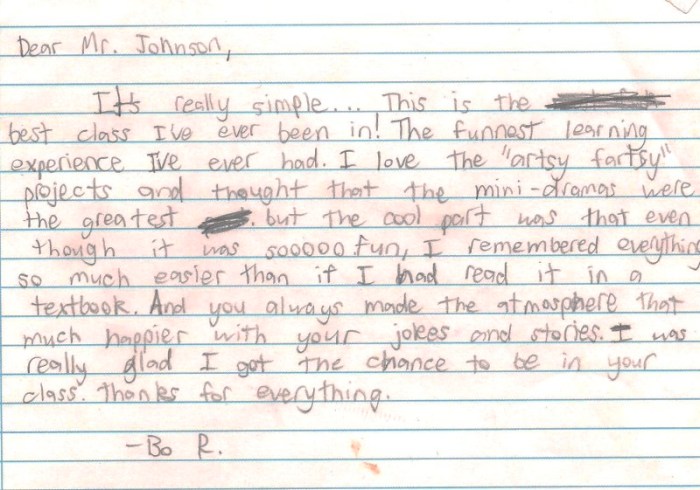 Dear Mr. Johnson,
It's really simple... This is the
best class I've ever been in! The funnest learning
experience I've ever had. I love the "artsy fartsy"
projects and thought that the mini-dramas were
the greatest. but the cool part was that even
though it was sooooo fun, I remembered everything
so much easier than if I had read it in a
textbook. And you always made the atmosphere that
much happier with your jokes and stories. I was
really glad I got the chance to be in your
class. Thanks for everything.
-Bo R.